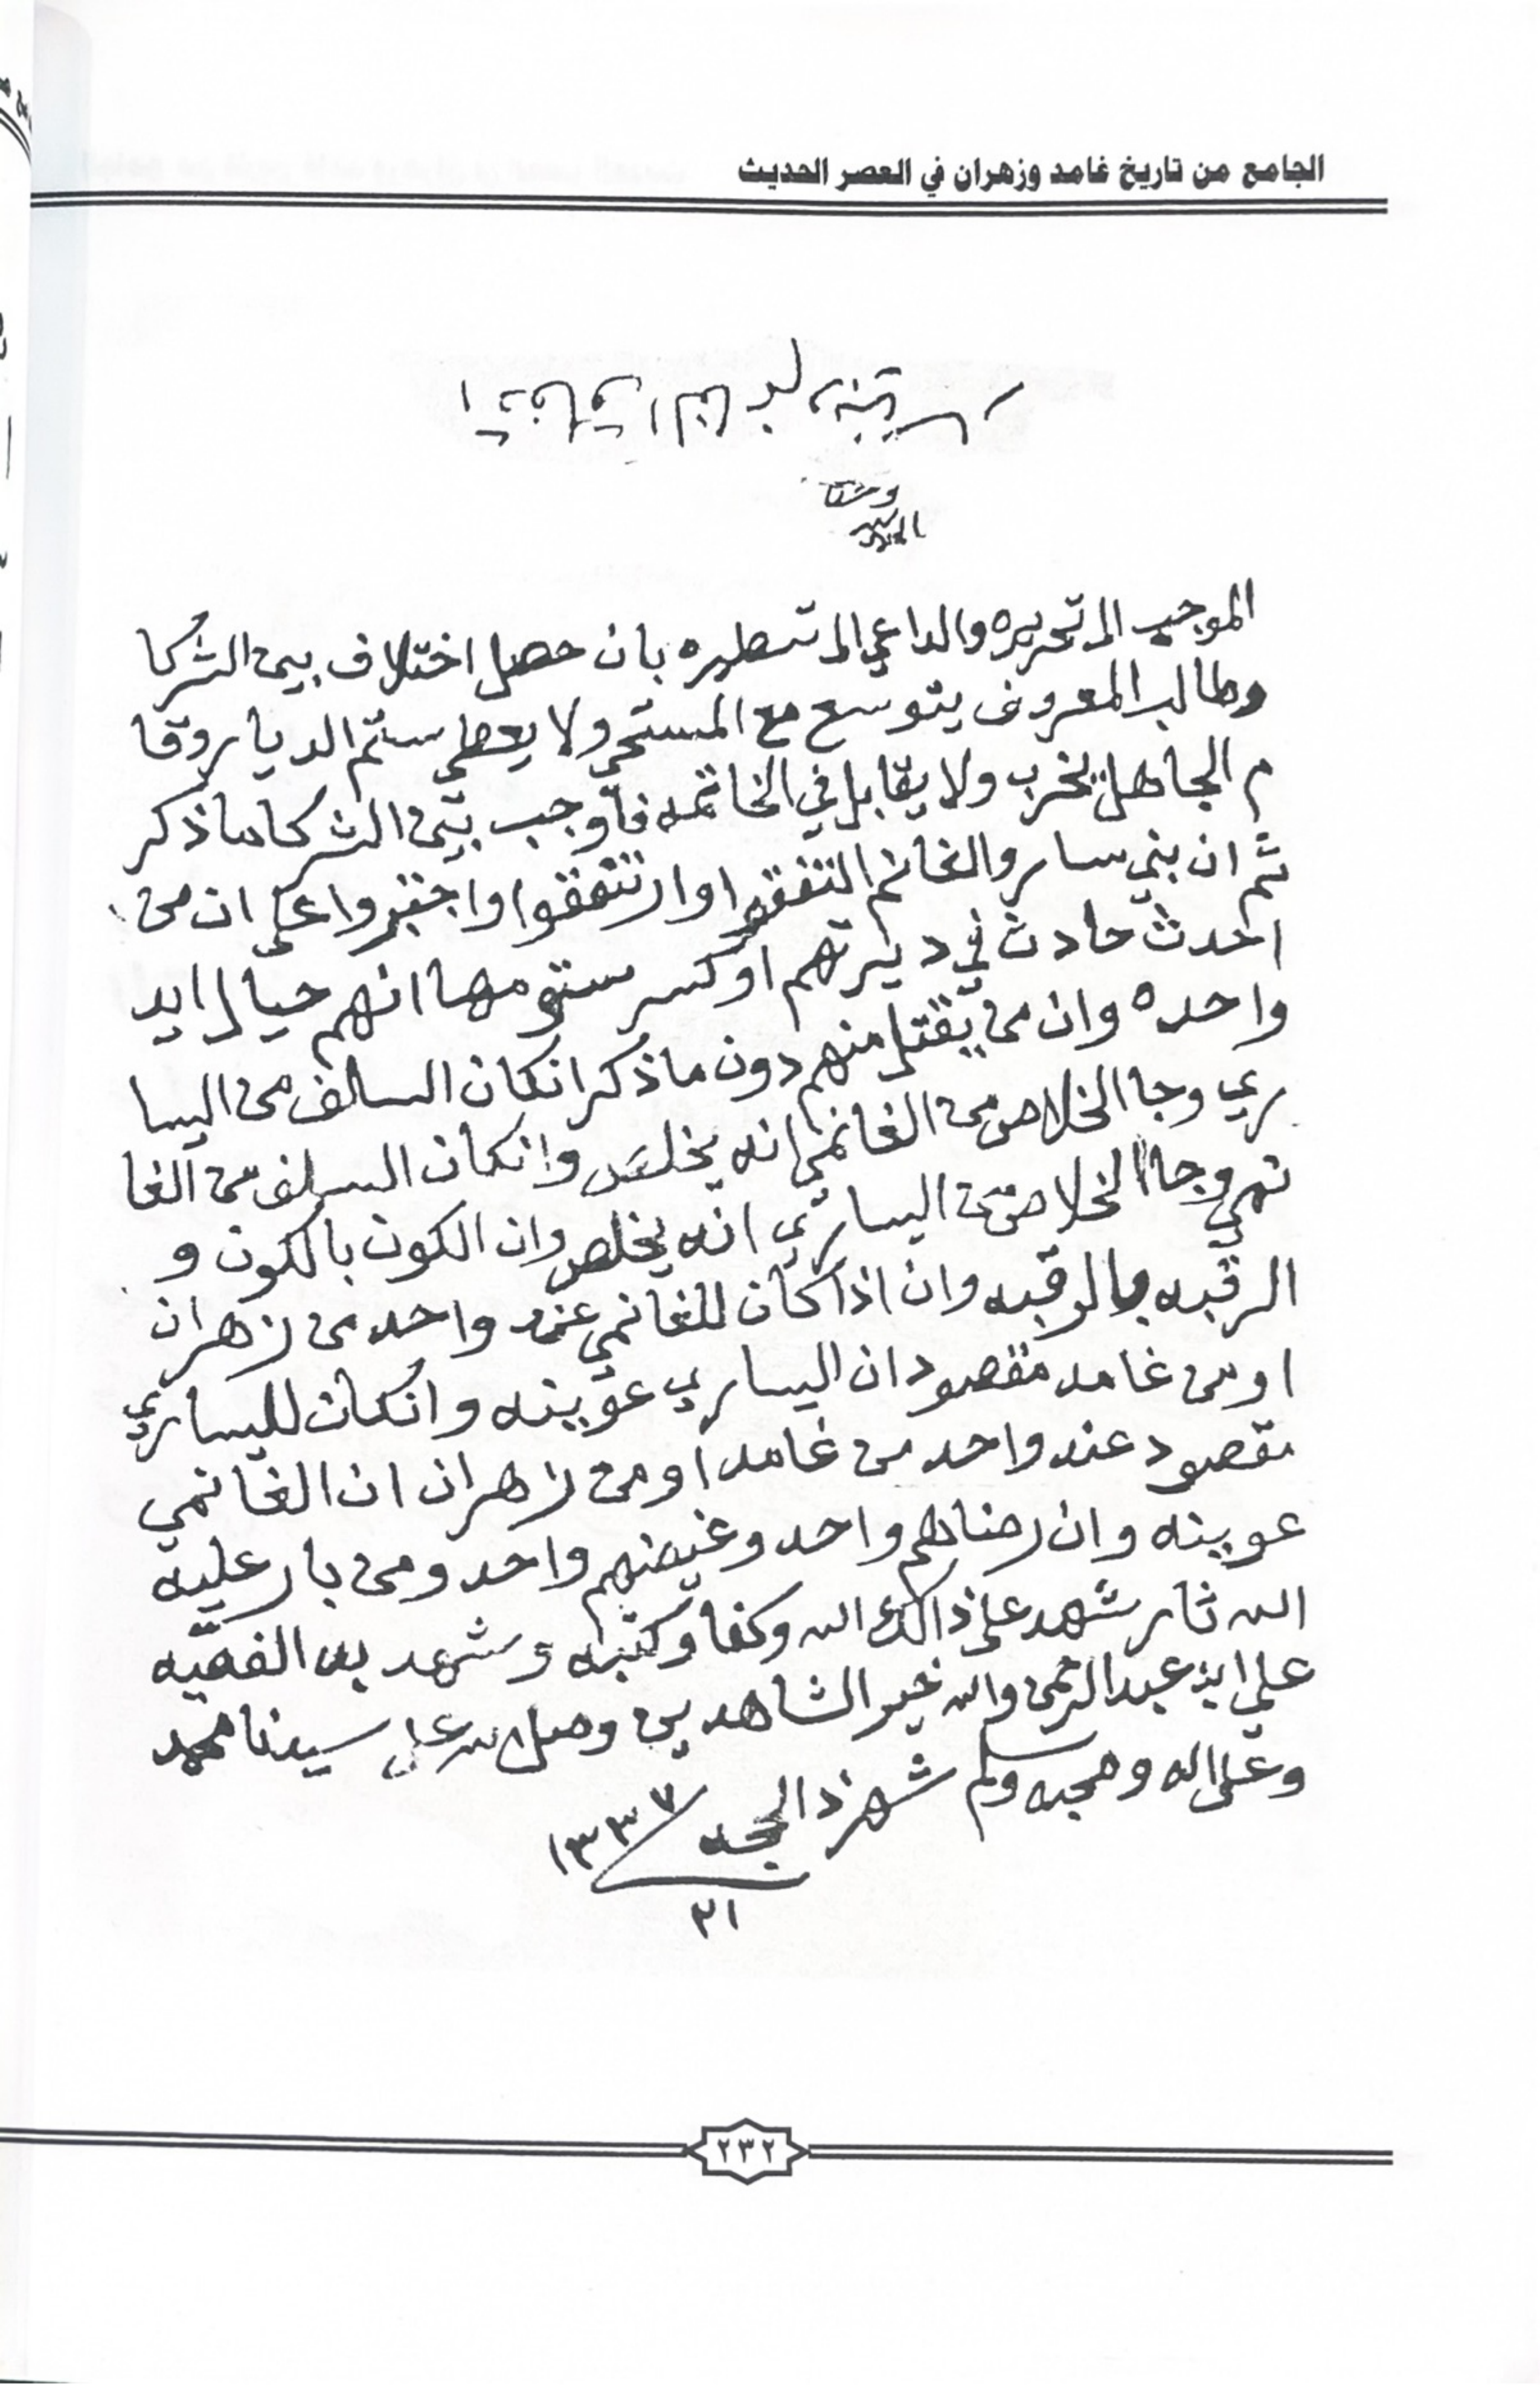 الجامع من تاريخ غامد وزهران في العصر الحديث
الموجب الى تحريره والداعي الى تسطيره بان حصل اختلاف بين الشركا
وطالب المعروف يتوسع مع المستحي ولا يعطي ستم الديار وقا
م الجاهل يخرب ولا يقابل في الخاتمه فاوجب بين الشركا ما ذكر
ثم ان بني سار والغانم اتفقوا وارتفقوا واجتبروا على ان من
احدث حادث في ديرتهم او كسر ستومها انهم حيال ايد
واحده وان من يقتل منهم دون ما ذكر انكان السالف من اليسا
ري وجا الخلاص من الغانمي انه يخلص وانكان السلف من الغا
نمي وجا الخلاص من اليساري انه يخلص وان الكون بالكون و
الرقبه بالرقبه وان اذا كان للغانمي عند واحد من زهران
او من غامد مقصود ان اليساري عوينه وانكان لليساري
مقصود عند واحد من غامد او من زهران ان الغانمي
عوينه وان رضاهم واحد وغيضهم واحد ومن بار عليه
الله ثار شهد على ذالك الله وكفا وكتبه وشهد به الفقيه
علي ابن عبدالرحمن والله خير الشاهدين وصلى الله على سيدنا محمد
وعلى اله وصحبه وسلم شهر ذالحجه ١٣٣٧
٢١
٢٣٢